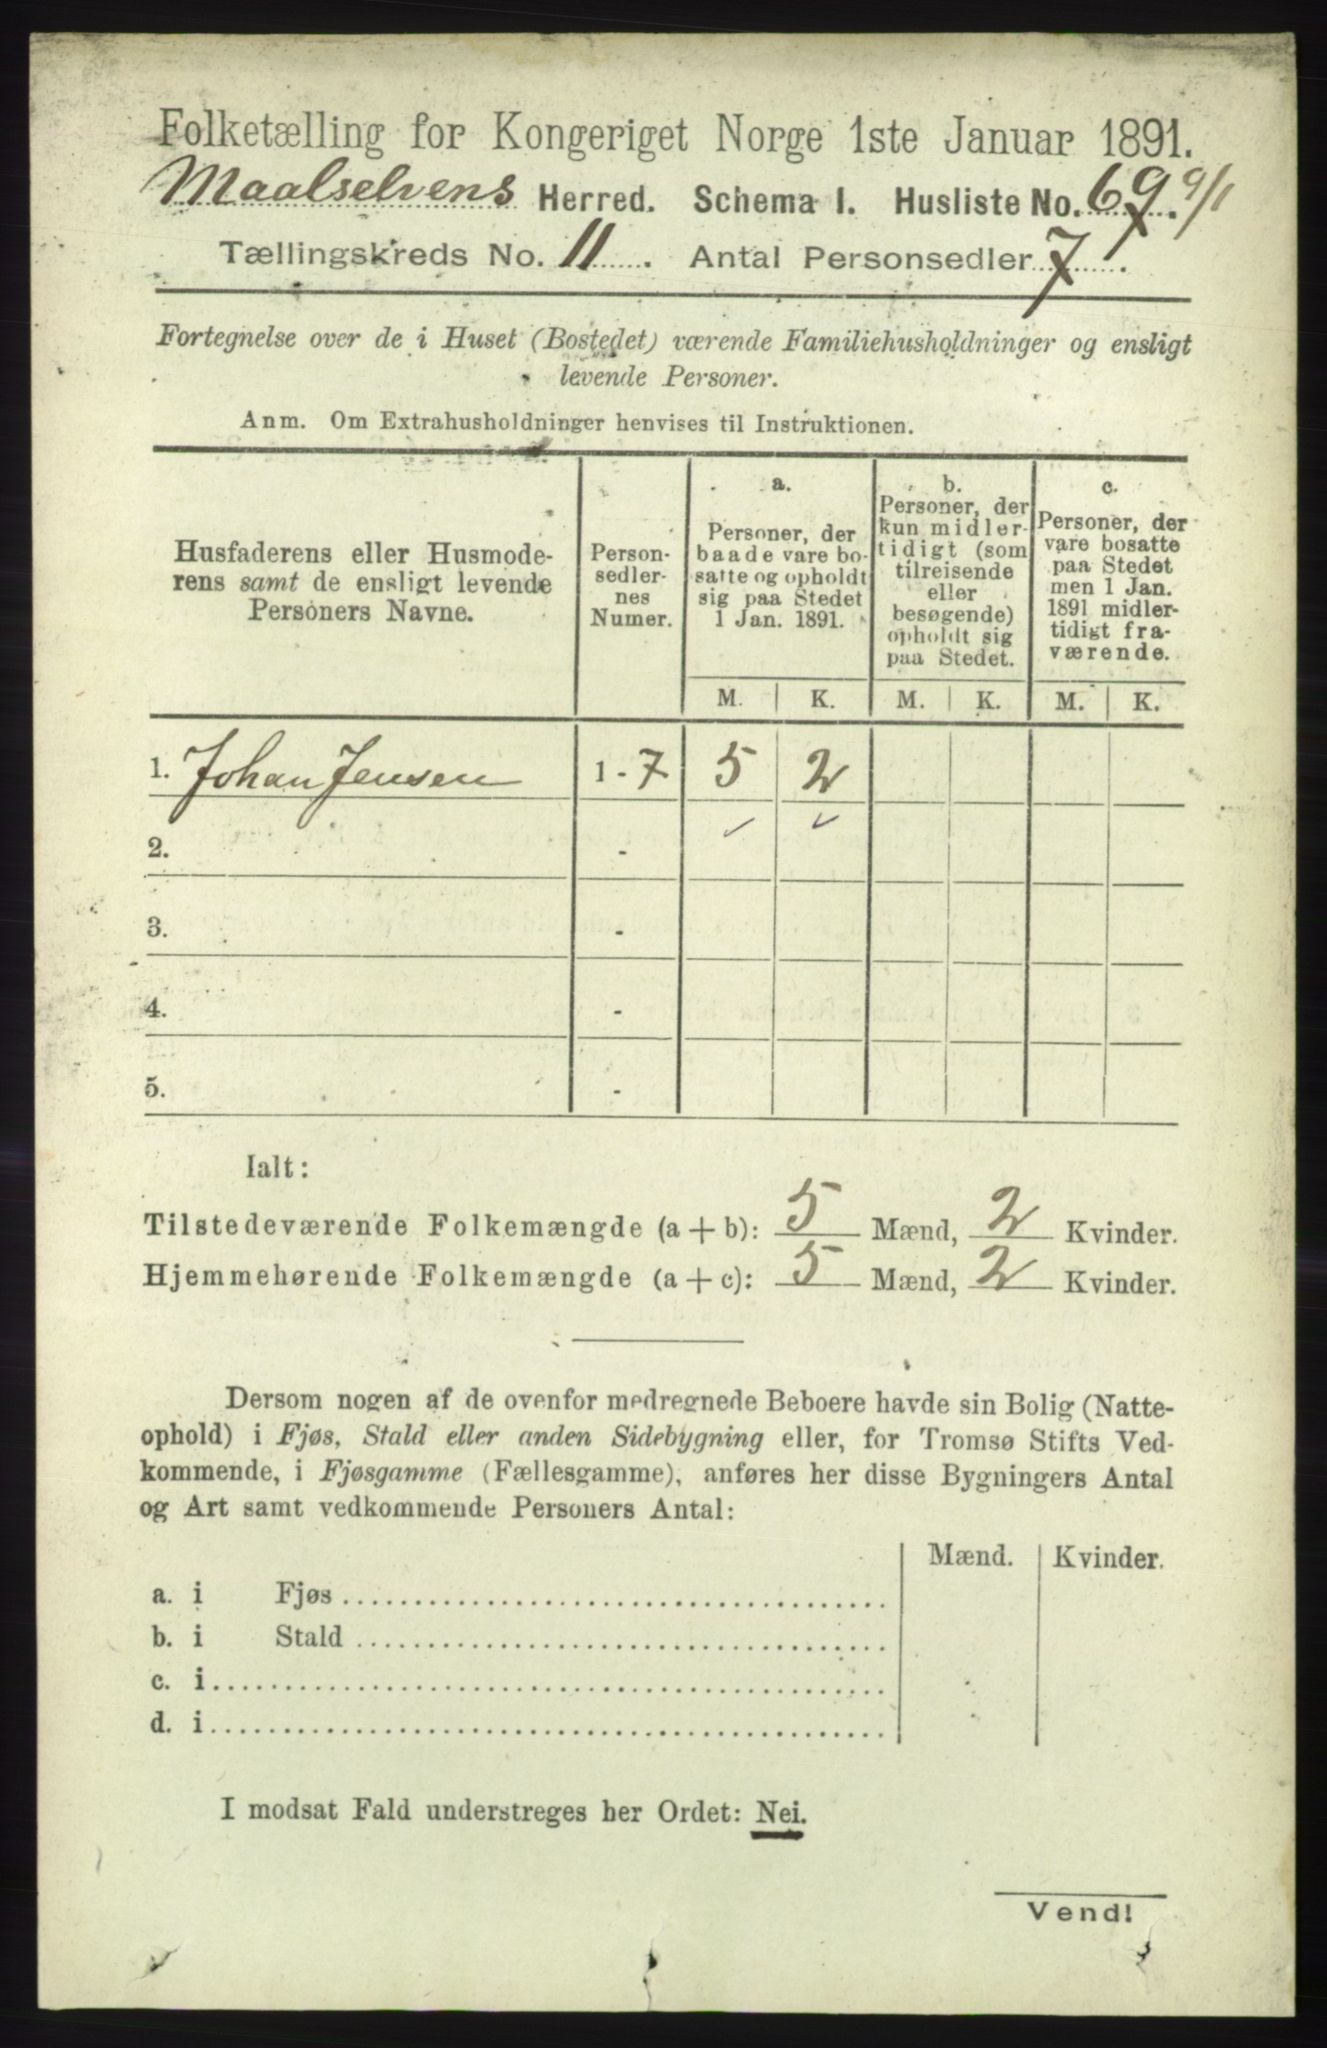 Folketælling for Kongeriget Norge 1ste Januar 1891.
Maalselvens Herred. Schema I. Husliste No. 69. 9/1
Tællingskreds No. 11. Antal Personsedler 7.
Fortegnelse over de i Huset (Bostedet) værende Familiehusholdninger og ensligt
levende Personer.
Anm. Om Extrahusholdninger henvises til Instruktionen.
Husfaderens eller Husmode-
rens samt de ensligt levende
Personers Navne.
Person-
sedler-
nes
Numer.
a.
Personer, der
baade vare bo-
satte og opholdt
sig paa Stedet
1 Jan. 1891.
b.
Personer, der
kun midler-
tidigt (som
tilreisende
eller
besøgende)
opholdt sig
paa Stedet.
c.
Personer, der
vare bosatte
paa Stedet
men 1 Jan.
1891 midler-
tidigt fra-
værende.
M. K. M. K. M. K.
1. Johan Jensen 1 - 7 5 2
2. -
3. -
4. -
5. -
Ialt:
Tilstedeværende Folkemængde (a + b): 5 Mænd, 2 Kvinder.
Hjemmehørende Folkemængde (a + c): 5 Mænd, 2 Kvinder.
Dersom nogen af de ovenfor medregnede Beboere havde sin Bolig (Natte-
ophold) i Fjøs, Stald eller anden Sidebygning eller, for Tromsø Stifts Ved-
kommende, i Fjøsgamme (Fællesgamme), anføres her disse Bygningers Antal
og Art samt vedkommende Personers Antal:
Mænd. Kvinder.
a. i Fjøs
b. i Stald
c. i
d. i
I modsat Fald understreges her Ordet: Nei.
Vend!